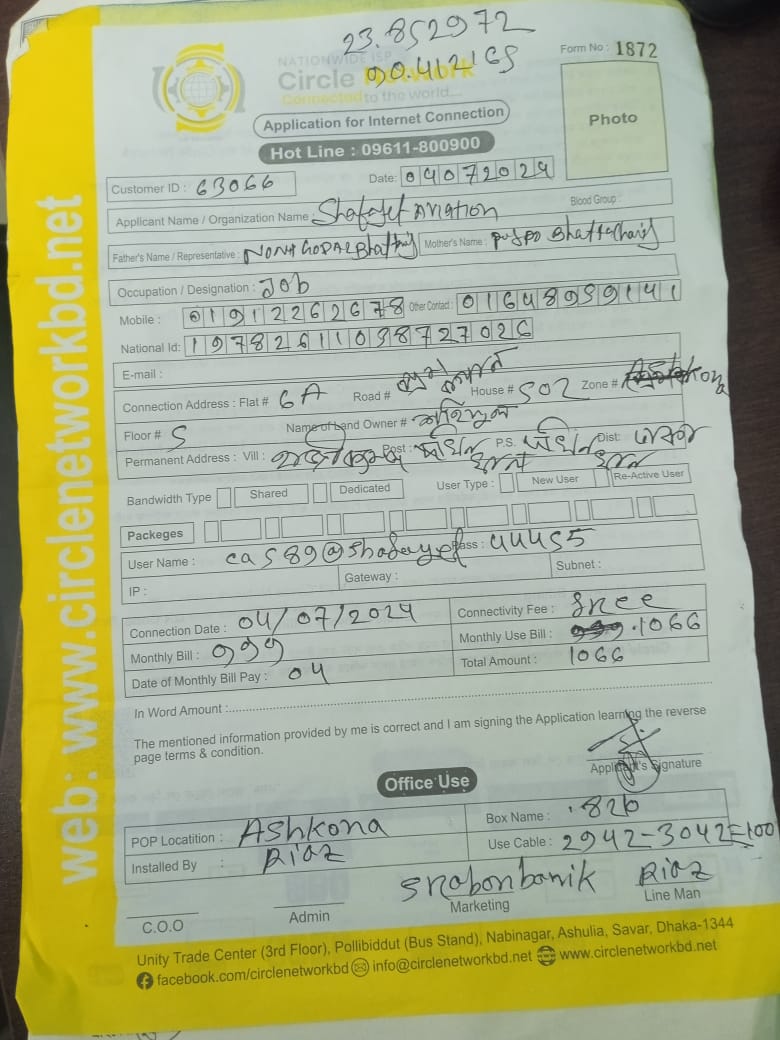 23.852972
90.412165
Form No : 1872
NATIONWIDE ISP
Circle Network
Connected to the world....
Photo
Application for Internet Connection
Hot Line : 09611-800900
Customer ID : 63066
Date: 04072024
Applicant Name / Organization Name : Shafayet aviation
Blood Group :
Father's Name / Representative : NONI GOPAL
Mother's Name :
Occupation / Designation : Job
Mobile : 01912262678 Other Contact : 01648959141
National Id: 19782611038727026
E-mail :
Connection Address : Flat # 6A Road # House # 502 Zone # Ashkona
Floor # 5 Name of Land Owner #
Permanent Address : Vill : Post : P.S. Dist:
Bandwidth Type Shared Dedicated User Type : New User Re-Active User
Packeges
User Name : cas89@shafayet Pass : 44455
IP : Gateway : Subnet :
Connection Date : 04/07/2024 Connectivity Fee : free
Monthly Bill : 999 Monthly Use Bill : 1066
Date of Monthly Bill Pay : 04 Total Amount : 1066
In Word Amount :
The mentioned information provided by me is correct and I am signing the Application learning the reverse
page terms & condition.
Applicant's Signature
Office Use
POP Locatition : Ashkona Box Name : .826
Installed By : Riaz Use Cable : 2942-3042=100
Srabon banik Riaz
C.O.O Admin Marketing Line Man
Unity Trade Center (3rd Floor), Pollibiddut (Bus Stand), Nabinagar, Ashulia, Savar, Dhaka-1344
facebook.com/circlenetworkbd info@circlenetworkbd.net www.circlenetworkbd.net
web: www.circlenetworkbd.net